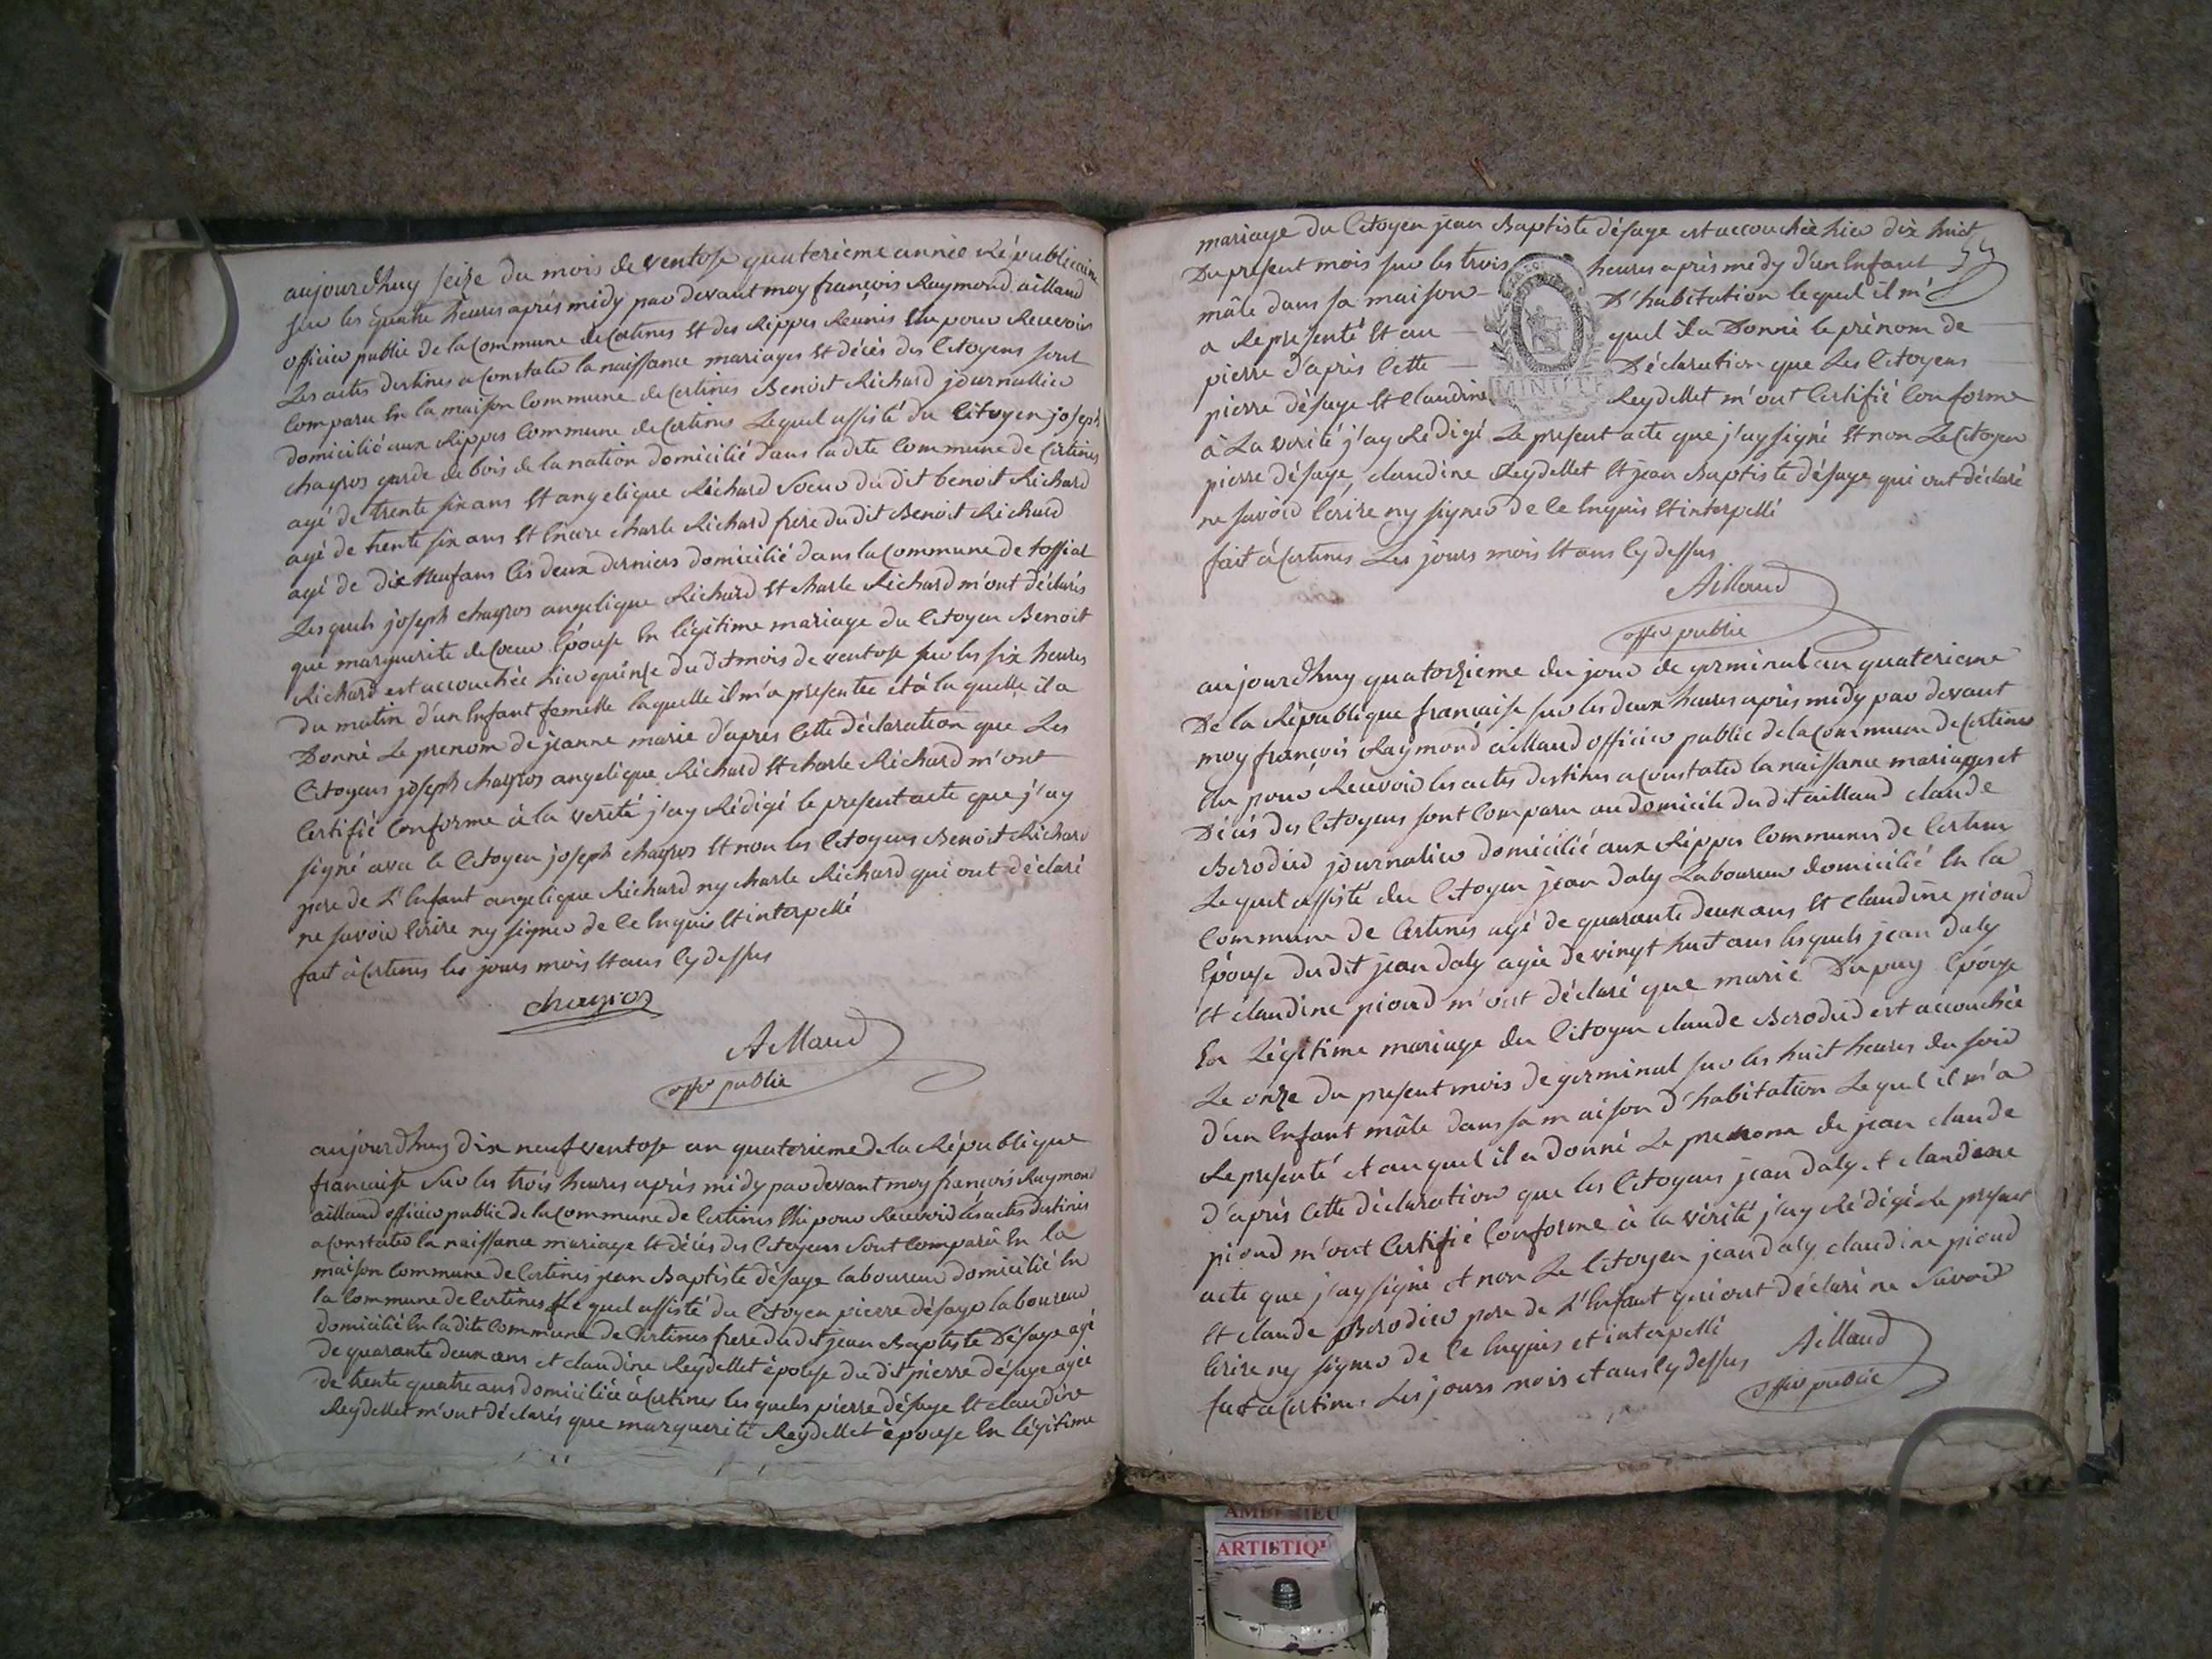 aujourdhuy seize du mois de ventose quaterieme année Républicaine
sur les quatre heures aprés midy par devant moy françois Raymond aillaud
officier public de la Commune de Certines et des Rippes Réunis Elu pour Recevoir
Les actes destinés a Constater la naissance mariages et décès des Citoyens sont
Comparu En la maison Commune de Certines Benoit Richard journallier
domicilié aux Rippes Commune de Certines Lequel assisté du Citoyen joseph
chagros garde de bois de la nation domicilié dans la dite Commune de Certines
agé de trente six ans Et angelique Richard Soeur du dit benoit Richard
agé de trente six ans Et Encore charle Richard frere du dit Benoit Richard
agé de dix Neuf ans les deux derniers domicilié dans la Commune de tossiat
Lesquels joseph chagros angelique Richard Et charle Richard m'ont déclarés
que marguerite Epouse En légitime mariage du Citoyen Benoit
Richard est accouchée hier quinze du dit mois de ventose sur les six heures
du matin d'un Enfant femelle laquelle il m'a presentée et à la quelle il a
Donné Le prenom de jeanne marie d'aprés Cette déclaration que Les
Citoyens joseph chagros angelique Richard Et charle Richard m'ont
Certifié Conforme à la verité j'ay Rédigé le present acte que j'ay
signé avec le Citoyen joseph chagros Et non les Citoyens Benoit Richard
pere de L'Enfant angelique Richard ny charle Richard qui ont déclaré
ne savoir Ecrire ny signer de Ce Enquis Et interpellé
fait à Certines les jours mois Et ans Cy dessus
chagros
Aillaud
offer public
aujourdhuy dix neuf ventose an quaterieme de la République
francaise Sur les trois heures aprés midy par devant moy françois Raymond
aillaud officier public de la Commune de Certines Elu pour Recevoir les actes destinés
a Constater la naissance mariage Et décès des Citoyens Sont Comparu En la
maison Commune de Certines jean Baptiste défaye laboureur domicilié En
la Commune de Certines Lequel assisté du Citoyen pierre défaye laboureur
domicilié En la dite Commune de Certines frere du dit jean Baptiste Défaye agé
de quarante deux ans et claudine Reydellet épouse du dit pierre défaye agée
de trente quatre ans domiciliée à Certines les quels pierre défaye Et claudine
Reydellet m'ont déclarés que marguerite Reydellet épouse En légitime
mariage du Citoyen jean Baptiste défaye est accouchée hier dix huit
Du present mois sur les trois heures aprés medy d'un Enfant
mâle dans sa maison D'habitation lequel il m'
a Representé Et au quel il a Donné le prénom de
pierre d'aprés Cette Déclaration que Les Citoyens
pierre défaye Et Claudine Reydellet m'ont Certifié Conforme
MINUTE
à La verité j'ay Rédigé Le present acte que j'ay signé Et non Le Citoyen
pierre défaye, claudine Reydellet Et jean Baptiste défaye qui ont déclaré
ne savoir Ecrire ny signer de Ce Enquis Et interpellé
fait à Certines Les jours mois Et ans Cy dessus
Aillaud
offer public
aujourdhuy quatorzieme du jour de germinal an quaterieme
De la République francaise sur les deux heures aprés midy par devant
moy françois Raymond aillaud officier public de la Commune de Certines
Elu pour Recevoir les actes destinés a Constater la naissance mariages et
Décès des Citoyens sont Comparu au domicile du dit aillaud claude
Berodier journalier domicilié aux Rippes Communes de Certines
Lequel assisté du Citoyen jean daly Laboureur domicilié En la
Commune de Certines agé de quarante deux ans Et claudine pioud
Epouse du dit jean daly agée de vingt huit ans lesquels jean daly
Et claudine pioud m'ont déclaré que marie Dupuy Epouse
En Légitime mariage du Citoyen claude Berodier est accouchée
Le onze du present mois de germinal sur les huit heures du soir
d'un Enfant mâle dans sa maison d'habitation Lequel il m'a
Representé et auquel il a donné Le prenom de jean claude
d'après Cette déclaration que les Citoyens jean daly et claudine
pioud m'ont Certifié Conforme à la vérité j'ay Rédigé Le present
acte que j'ay signé et non Le Citoyen jean daly claudine pioud
Et claude Berodier pere de L'Enfant qui ont déclaré ne Savoir
Ecrire ny signer de Ce Enquis et interpellé
fait a Certines Les jours mois et ans Cy dessus Aillaud
offer public
ARTISTIQ